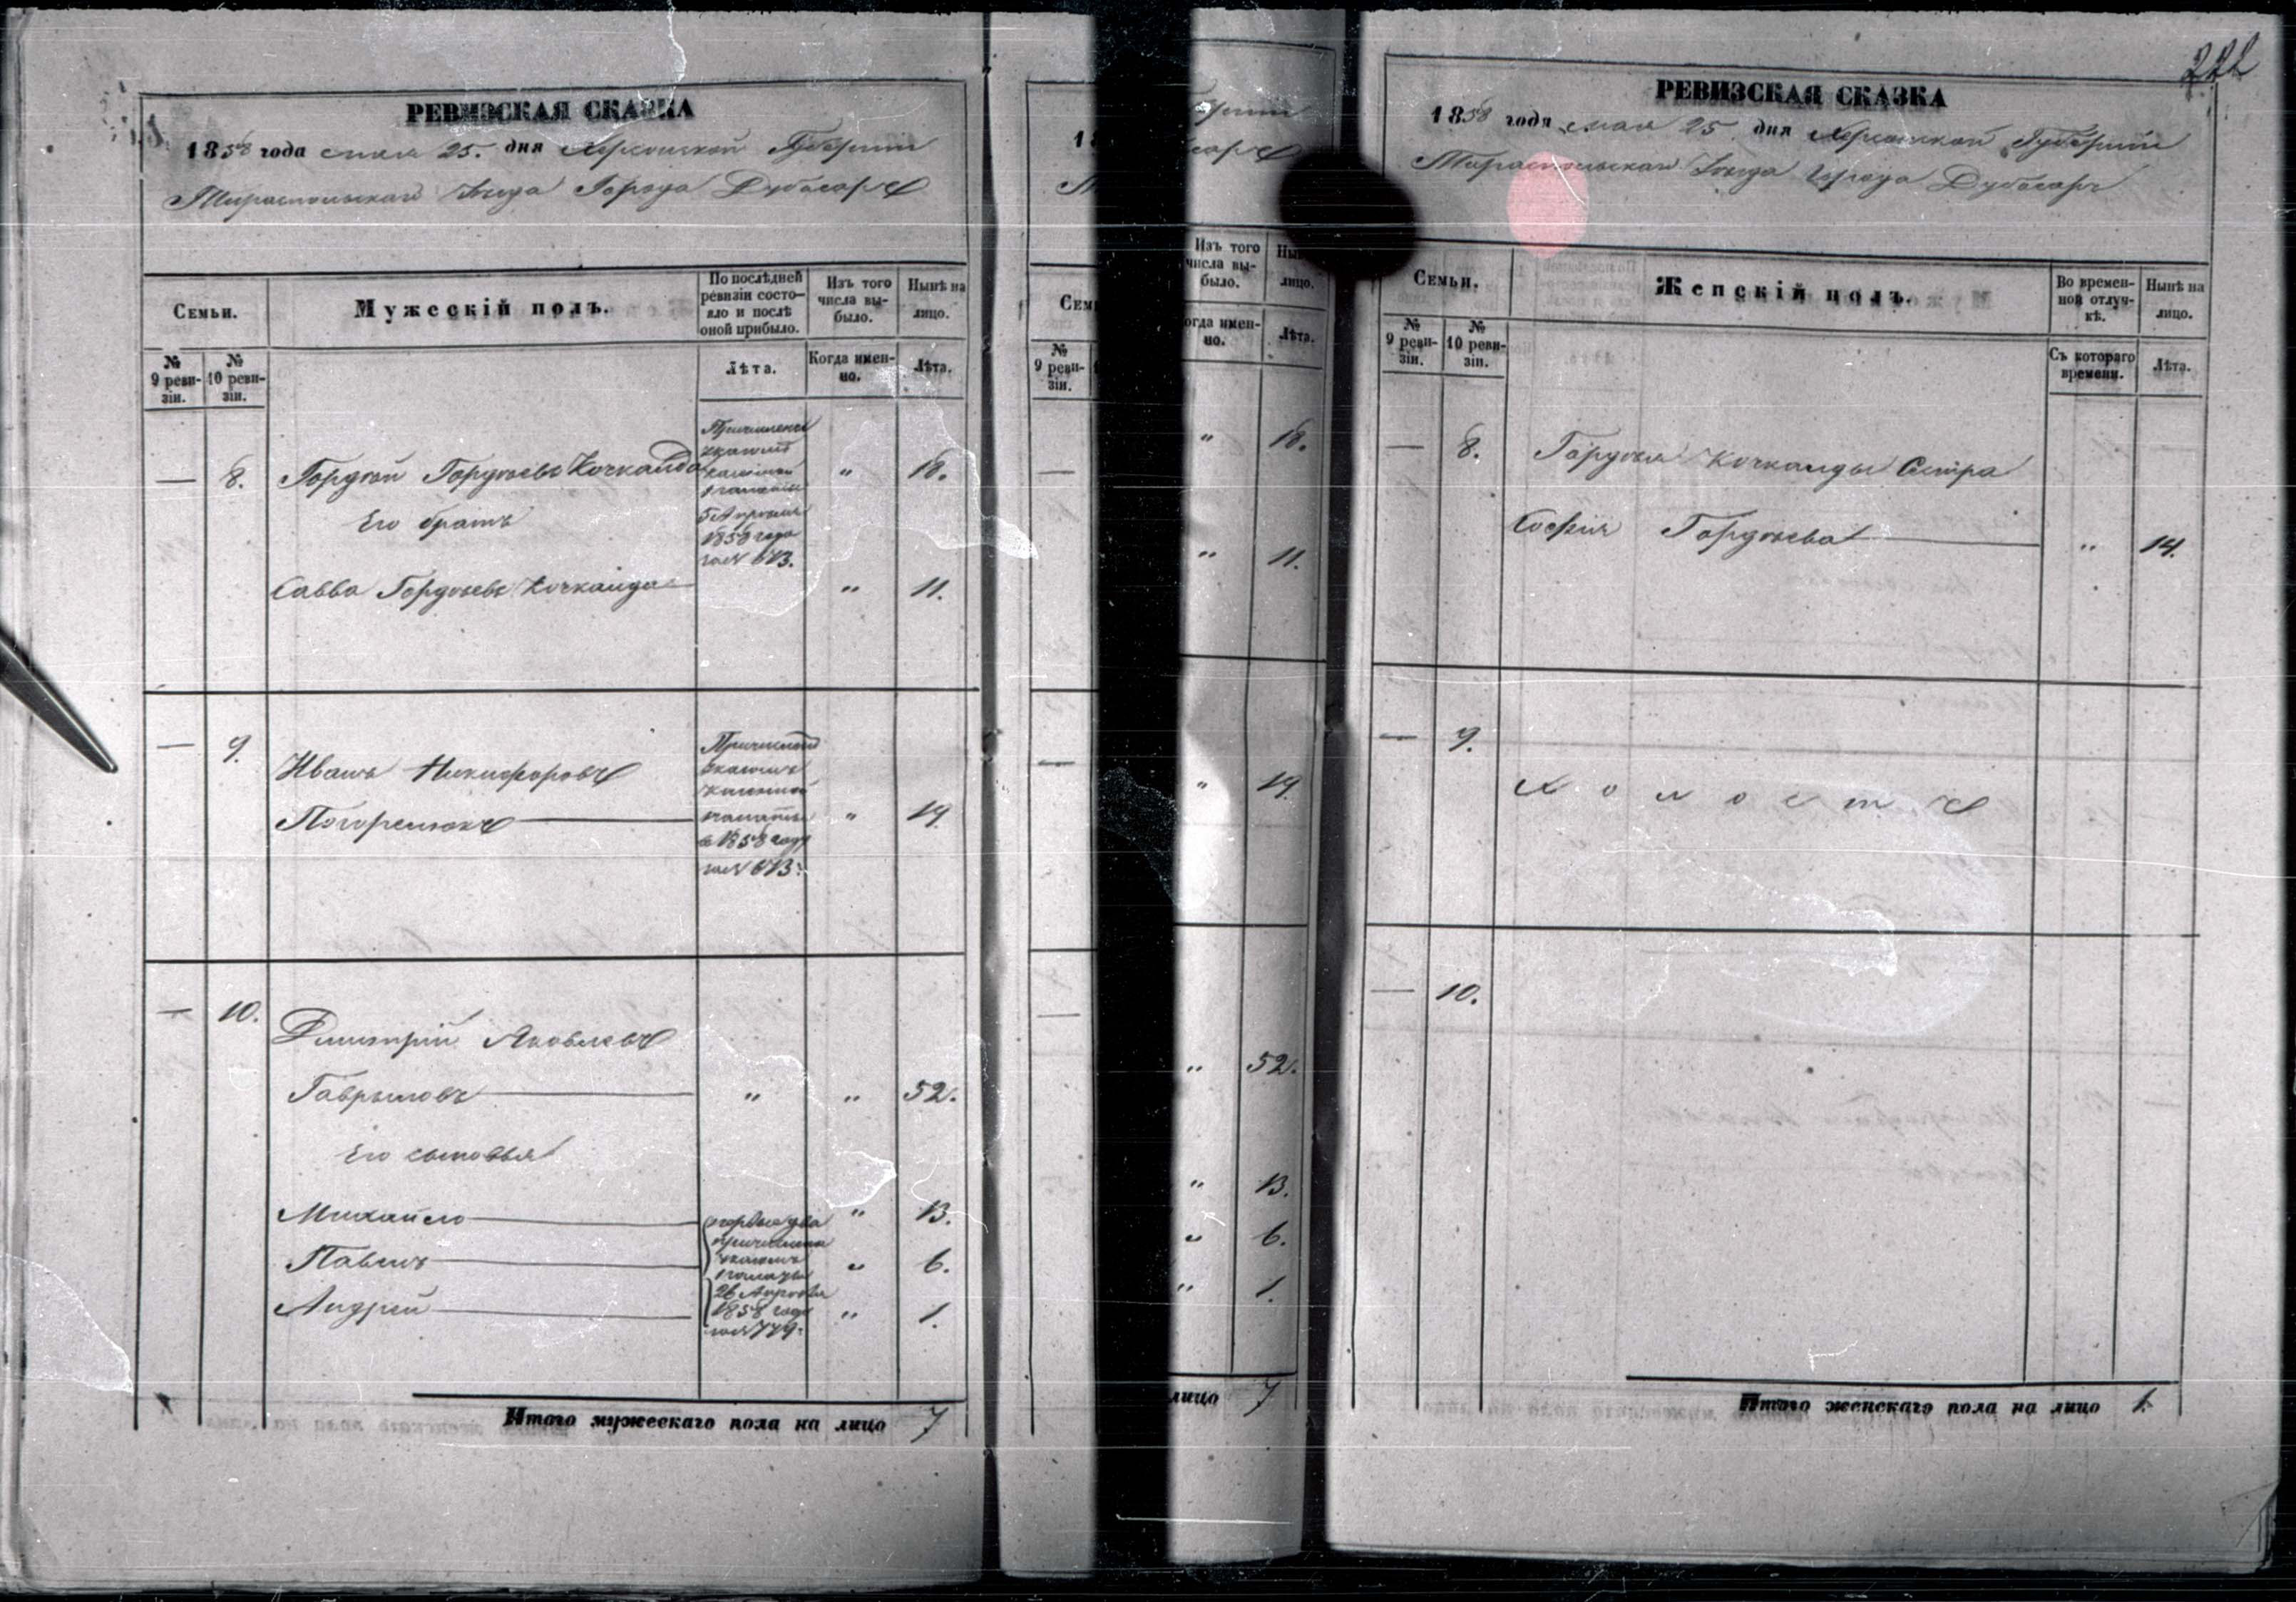 РЕВИЗСКАЯ СКАЗКА
1858 года мая 25. дня Херсонской Губернии
Тираспольскаго Уезда Города Дубосаръ
Семьи.
Мужескій полъ.
По послѣдней ревизіи состояло и послѣ оной прибыло.
Изъ того числа выбыло.
Нынѣ на лицо.
№ 9 ревизіи.
№ 10 ревизіи.
Лѣта.
Когда именно.
Лѣта.
— 8. Гордѣй Гордѣевъ Кочканда " 18.
Его братъ
Савва Гордѣевъ Кочканда " 11.
Причисленъ
указомъ
казенной
палаты
5 Апрѣля
1858 года
за № 613.
— 9. Иванъ Никифоровъ
Погорелюкъ " 19.
Причисленъ
указомъ
казенной
палаты
въ 1858 году
за № 613.
— 10. Дмитрій Яковлевъ
Гаврыловъ " " 52.
Его сыновья
Михайло " 13.
Павелъ " 6.
Андрей " 1.
первые два
причислены
указомъ
палаты
26 Апрѣля
1858 года
за № 779.
Итого мужескаго пола на лицо 7
Семьи
№ 9 ревизіи.
—
—
—
Изъ того числа выбыло.
лицо.
Лѣта.
" 18.
" 11.
" 19.
" 52.
" 13.
" 6.
" 1.
лицо 7
222
РЕВИЗСКАЯ СКАЗКА
1858 года мая 25 дня Херсонской Губерніи
Тираспольскаго Уезда Города Дубосаръ
Семьи.
Женскій полъ.
Во временной отлучкѣ.
Нынѣ на лицо.
№ 9 ревизіи.
№ 10 ревизіи.
Съ котораго времени.
Лѣта.
— 8. Гордѣя Кочканды Сестра
София Гордѣева " 14.
— 9.
Холостъ
— 10.
Итого женскаго пола на лицо 1.